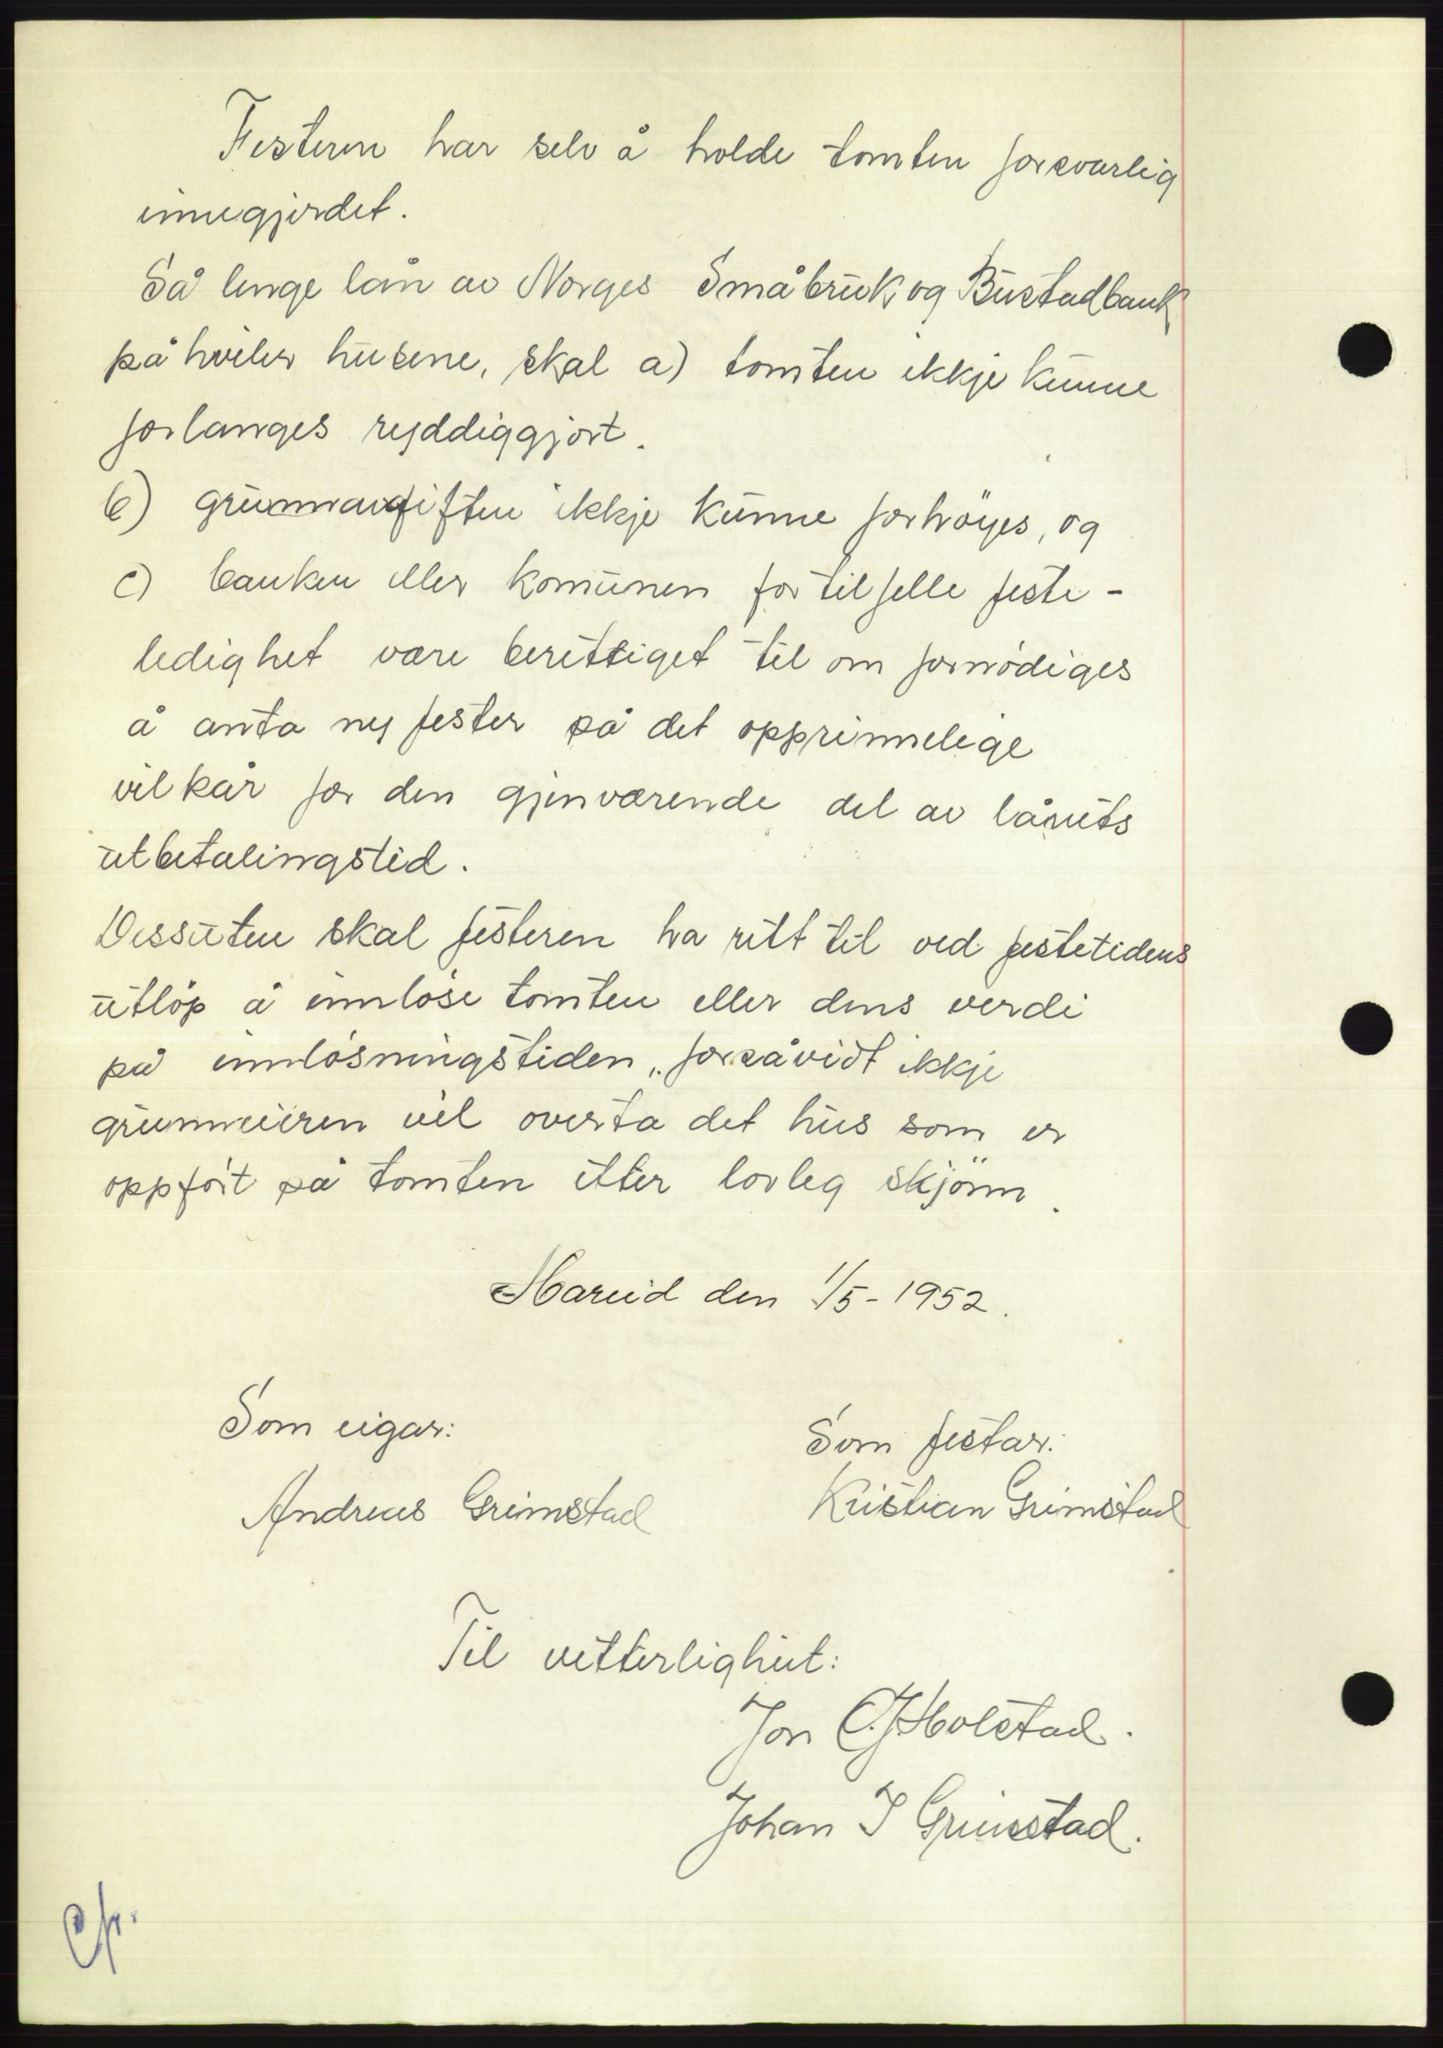 Festeren har selv å holde tomten forsvarlig
innegjerdet.
Så lenge lån av Norges Småbruk og Bustadbank
påhviler husene, skal a) tomten ikkje kunne
forlanges ryddiggjort.
b) grunnavgiften ikkje kunne forhöyes, og
c) banken eller komunen for tilfelle feste-
ledighet være berettiget til om fornödiges
å anta ny fester på det opprinnelige
vilkår for den gjenværende del av lånets
utbetalingstid.
Dessuten skal festeren ha rett til ved festetidens
utløp å innløse tomten eller dens verdi
på innløsningstiden, forsåvidt ikkje
grunneieren vil overta det hus som er
oppført på tomten etter lovleg skjönn.
Hareid den 1/5-1952.
Som eigar:
Som festar:
Andreas Grimstad
Kristian Grimstad
Til vitterlighet:
Jon Holstad.
Johan J Grimstad.